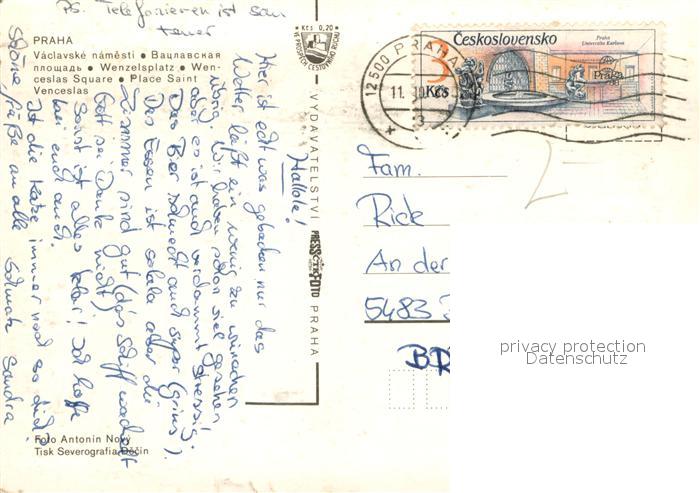 Ps. Telefonieren ist sau
teuer
PRAHA
Václavské náměstí • Вацлавская
площадь • Wenzelsplatz • Wen-
ceslas Square • Place Saint
Venceslas
Hallole!
Hier ist echt was geboten nur das
Wetter läßt ein wenig zu wünschen
übrig. Wir haben schon viel gesehen,
aber es ist auch verdammt stressig.
Das Bier schmeckt auch super (grins).
Das Essen ist solala aber die
Zimmer sind gut (das Schiff wackelt
Gott sei Dank nicht)
Sonst ist alles klar! Ich hoffe
bei euch auch.
Ist die Katze immer noch so dick?
Schöne Grüße an alle Sandra
Foto Antonín Nový
Tisk Severografia Děčín
Kčs 0,20
VE PROSPĚCH CESTOVNÍHO RUCHU
VYDAVATELSTVÍ PRESSFOTO PRAHA
12500 PRAHA
11.
3
Československo
3 Kčs
Praha
Univerzita Karlova
Praga
Fam.
Rick
An der
5483
BRD
2
privacy protection
Datenschutz